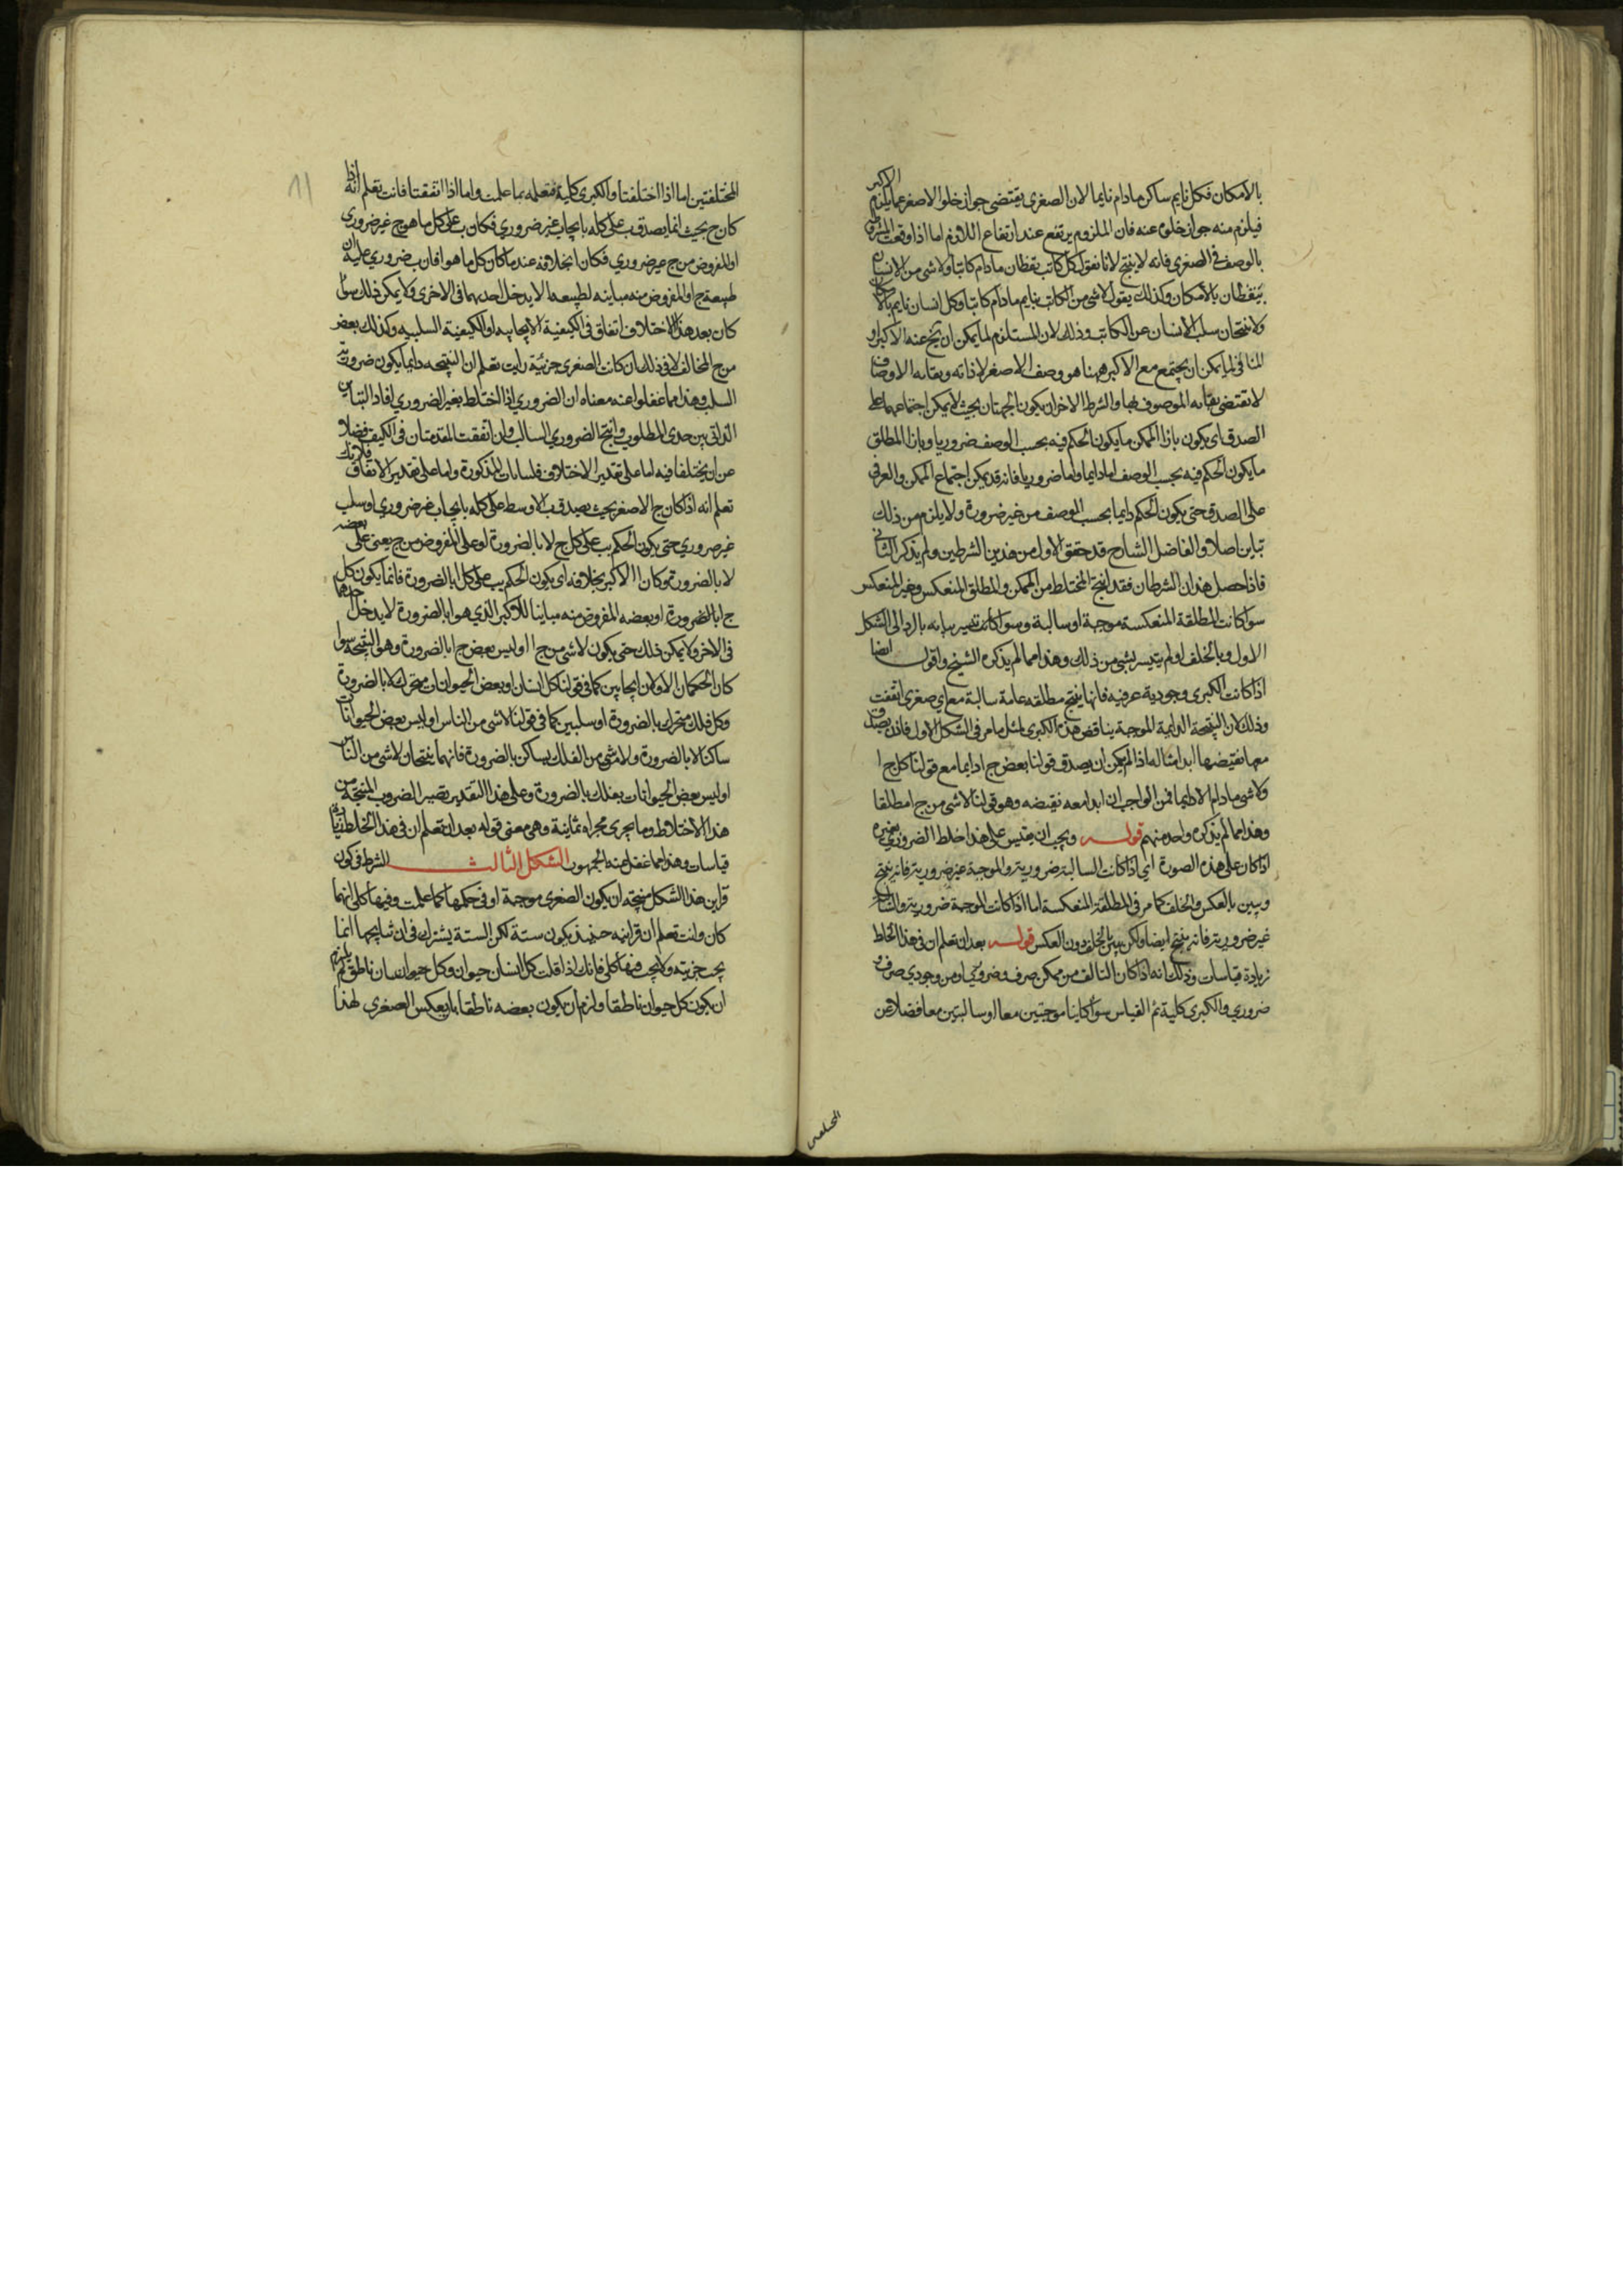 بالامكان فكل نايم ساكن مادام نايما لان الصغرى يقتضى جواز خلو الاصغر عما يلزم الاكبر
فيلزم منه جواز خلوه عنه فان الملزوم يرتفع عند ارتفاع اللازم اما اذا وقعت المشروطة
بالوصف فى الصغرى فانه لا ينتج لانا نقول كل كاتب يقظان مادام كاتبا ولا شى من الانسان
بيقظان بالامكان وكذلك يقول لا شى من الكاتب بنايم مادام كاتبا وكل انسان نايم بالامكان
ولا ينتجان سلب الانسان عن الكاتب وذلك لان المستلزم لما يمكن ان يخ عنه الاكبر او
المنافى لما يمكن ان يجتمع مع الاكبر ههنا هو وصف الاصغر لا ذاته وبقاء الاوصاف
لا يقتضى الموصوف بها والشرط الاخر ان يكون الجهتان بحيث لا يمكن اجتماعهما على
الصدق اى يكون بازا الممكن ما يكون الحكم فيه بحسب الوصف ضروريا وبازا المطلق
ما يكون الحكم فيه بحسب الوصف اما دايما واما ضروريا فانه قد يمكن اجتماع الممكن والعرفى
على الصدق حتى يكون الحكم دايما بحسب الوصف من غير ضرورة ولا يلزم من ذلك
تباين اصلا والفاضل الشارح قد حقق الاول من هذين الشرطين ولم يذكر الثانى
فاذا حصل هذان الشرطان فقد انتج المختلط من الممكن والمطلق المنعكس وغير المنعكس
سوا كانت المطلقة المنعكسة موجبة او سالبة وسوا كانت تيسر بيانه بالرد الى الشكل
الاول وبالخلف او لم يتيسر بشى من ذلك وهذا مما لم يذكره الشيخ واقول ايضا
اذا كانت الكبرى وجودية عرفيه فانها ينتج مطلقه عامة سالبة مع اى صغرى اتفقت
وذلك لان النتيجة الدايمة الموجبة يناقض هذه الكبرى لمثل ما مر فى الشكل الاول فاذن يصدق
معها نقيضها ابدا مثاله اذا لم يمكن ان يصدق قولنا بعض ج ا دايما مع قولنا كل ج ا
ولا شى مادام لا دايما فمن الواجب ان ابدا معه نقيضه وهو قولنا لا شى من ج ا مطلقا
وهذا مما لم يذكره واحد منهم قولـــه ويجب ان يقيس على هذا خلط الضرورى بغيره
اذا كان على هذه الصورة اى اذا كانت السالبة ضرورية والموجبة غير ضرورية فانه ينتج
ويبين بالعكس والخلف كما مر فى المطلقة المنعكسة اما اذا كانت الموجبة ضرورية والسالبة
غير ضرورية فانه ينتج ايضا ولكن يبين بالخلف دون العكس قولـــه بعد ان تعلم ان فى هذا الخلط
زيادة قياسات وذلك انه اذا كان التالف من ممكن صرف وضرورى او من وجودى صرف و
ضرورى والكبرى كلية تم القياس سوا كانتا موجبتين معا او سالبتين معا فضلا عن
المختلفتين
المختلفتين اما اذا اختلفتا والكبرى كلية فتعلمه بما علمت واما اذا اتفقتا فانت تعلم انه اذا
كان ج بحيث انما يصدق ب على كله بايجاب غير ضرورى فكان ب على كل ما هو ج غير ضرورى
او المفروض من ج غير ضرورى فكان ا بخلافه عندما كان كل ما هو ا فان ب ضرورى عليه ان
طبيعة ج او المفروض منه مباينه لطبيعة ا لا يدخل احديهما فى الاخرى ولا يمكن ذلك سوا
كان بعد هذا الاختلاف اتفاق فى الكيفية الايجابيه او الكيفية السلبيه وكذلك بعض
من ج المخالف لا فى ذلك ان كانت الصغرى جزئية رايت تعلم ان النتيجه دايما يكون ضرورية
السلب وهذا مما غفلوا عنه معناه ان الضرورى اذا اختلط بغير الضرورى افاد التباين
الذاتى بين حدى المطلوب وانتج الضرورى السالب وان اتفقت المقدمتان فى الكيف فضلا
عن ان يختلفا فيه اما على تقدير الاختلاف فلبيانات المذكورة واما على تقدير الاتفاق فلانك
تعلم انه اذا كان ج الاصغر بحيث يصدق ب الاوسط على كله بايجاب غير ضرورى او سلب
غير ضرورى حتى يكون الحكم ب على كل ج لا بالضرورة او على المفروض من ج يعنى على بعضه
لا بالضرورة وكان ا الاكبر بخلافه اى يكون الحكم ب على كل ا بالضرورة فانما يكون كل
ج ا بالضرورة او بعضه المفروض منه مباينا للاكبر الذى هو ا بالضرورة لا يدخل احدهما
فى الاخر ولا يمكن ذلك حتى يكون لا شى من ج ا او ليس بعض ج ا بالضرورة وهو النتيجه سوا
كان الحكمان الاولان ايجابين كما فى قولنا كل انسان او بعض الحيوان متحرك لا بالضرورة
وكل فلك متحرك بالضرورة او سلبين كما فى قولنا لا شى من الناس او ليس بعض الحيوانات
ساكنا لا بالضرورة ولا شى من الفلك بساكن بالضرورة فانهما ينتجان لا شى من الناس
او ليس بعض الحيوانات بفلك بالضرورة وعلى هذا التقدير يصير الضروب المنتجة من
هذا الاختلاط وما يجرى مجراه ثمانية وهى معنى قوله بعد ان تعلم ان فى هذا الخلط زيادة
قياسات وهذا مما غفل عنه الجمهور الشكل الثالث الشرط فى كون
قراين هذا الشكل منتجة ان يكون الصغرى موجبة او فى حكمها كما علمت وفيها كلى ايهما
كان وانت تعلم ان قراينه حينئذ يكون ستة لكن الستة يشترك فى ان نتايجها انما
يجب جزئية ولا يجب فيها كلى فانك اذا قلت كل انسان حيوان وكل انسان ناطق لم يلزم
ان يكون كل حيوان ناطقا ولزم ان يكون بعضه ناطقا بان يعكس الصغرى لهذا